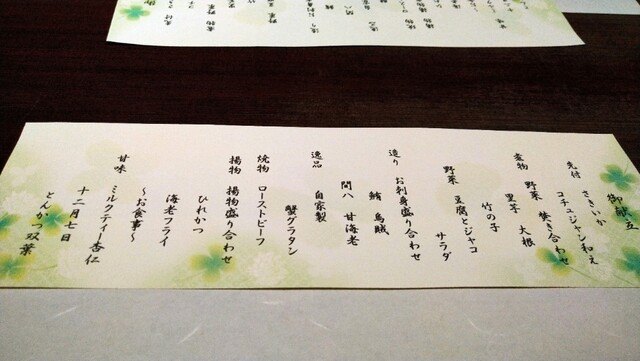 御献立
先付 さきいか
コチュジャン和え
煮物 野菜 焚き合わせ
里芋 大根
竹の子
野菜 豆腐とジャコ
サラダ
造り お刺身盛り合わせ
鮪 烏賊
間八 甘海老
逸品 自家製
蟹グラタン
焼物 ローストビーフ
揚物 揚物盛り合わせ
ひれかつ
海老フライ
〜お食事〜
甘味 ミルクティー杏仁
十二月七日
とんかつ双葉